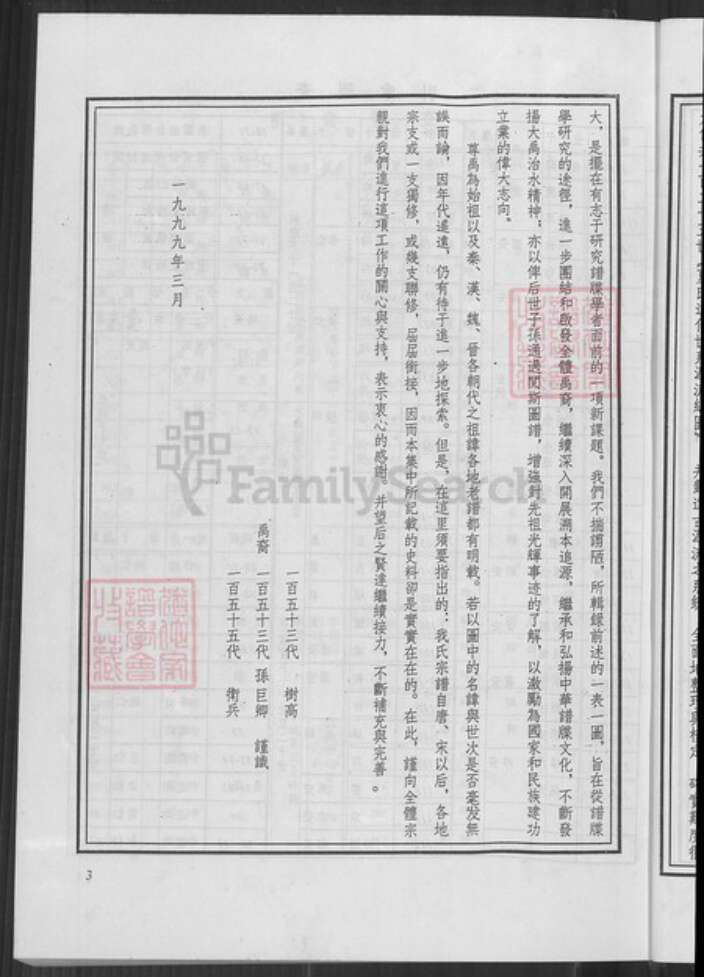 大，是擺在有志于研究譜牒學者面前的一項新課題。我們不揣謭陋，所輯録前述的一表一圖，旨在從譜牒
學研究的途徑，進一步團結和啟發全體禹裔，繼續深入開展溯本追源，繼承和弘揚中華譜牒文化，不斷發
揚大禹治水精神；亦以俾后世子孫通過閱斯圖譜，增強對先祖光輝事迹的了解，以激勵為國家和民族建功
立業的偉大志向。
尊禹為始祖以及秦、漢、魏、晉各朝代之祖諱各地老譜都有明載。若以圖中的名諱與世次是否毫发無
誤而論，因年代遙遠，仍有待于進一步地探索。但是，在這里須要指出的：我氏宗譜自唐、宋以后，各地
宗支或一支獨修，或幾支聯修，屆屆銜接，因而本集中所記載的史料卻是實實在在的。在此，謹向全體宗
親對我們進行這項工作的關心與支持，表示衷心的感謝。并望后之賢達繼續接力，不斷補充與完善。
一百五十三代 樹高
禹裔 一百五十三代 孫巨卿 謹識
一百五十五代 衛兵
一九九九年三月
3
FamilySearch